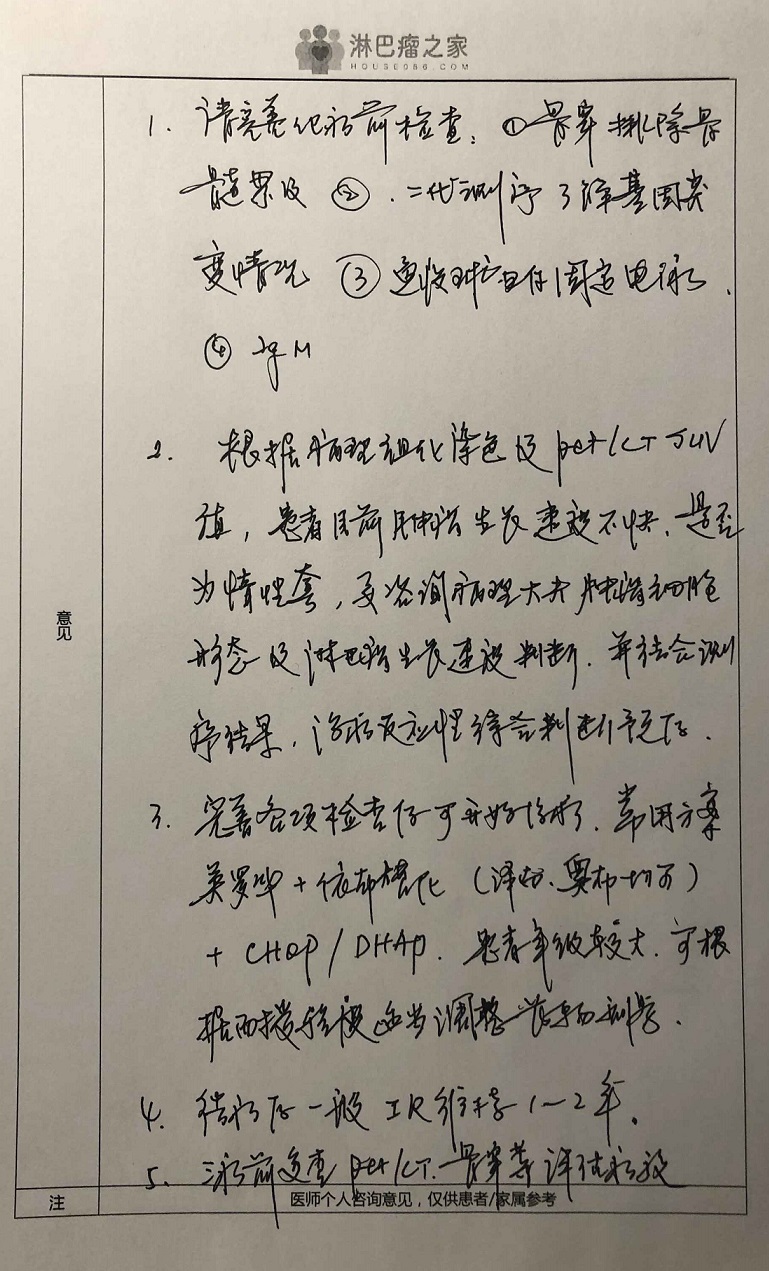 淋巴瘤之家
HOUSE086.COM
1. 请完善化疗前检查：①骨穿排除骨
髓累及 ②．二代测序了解基因突
变情况 ③ 蛋白固定电泳．
④ IgM
2. 根据病理组化染色及 pet/CT SUV
值，患者目前肿瘤生长速度不快．是否
为惰性套，要咨询病理大夫肿瘤细胞
形态及淋巴瘤生长速度判断．并结合测
序结果，治疗反应性综合判断预后．
3. 完善各项检查后可开始治疗．常用方案
美罗华 + 依布替尼（泽布、奥布均可）
+ CHOP / DHAP．患者年纪较大．可根
据耐受程度适当调整药的剂量．
4. 结疗后一般 IR 维持 1～2 年．
5. 三疗前复查 pet/CT．骨穿等评估疗效
意见
注
医师个人咨询意见，仅供患者/家属参考